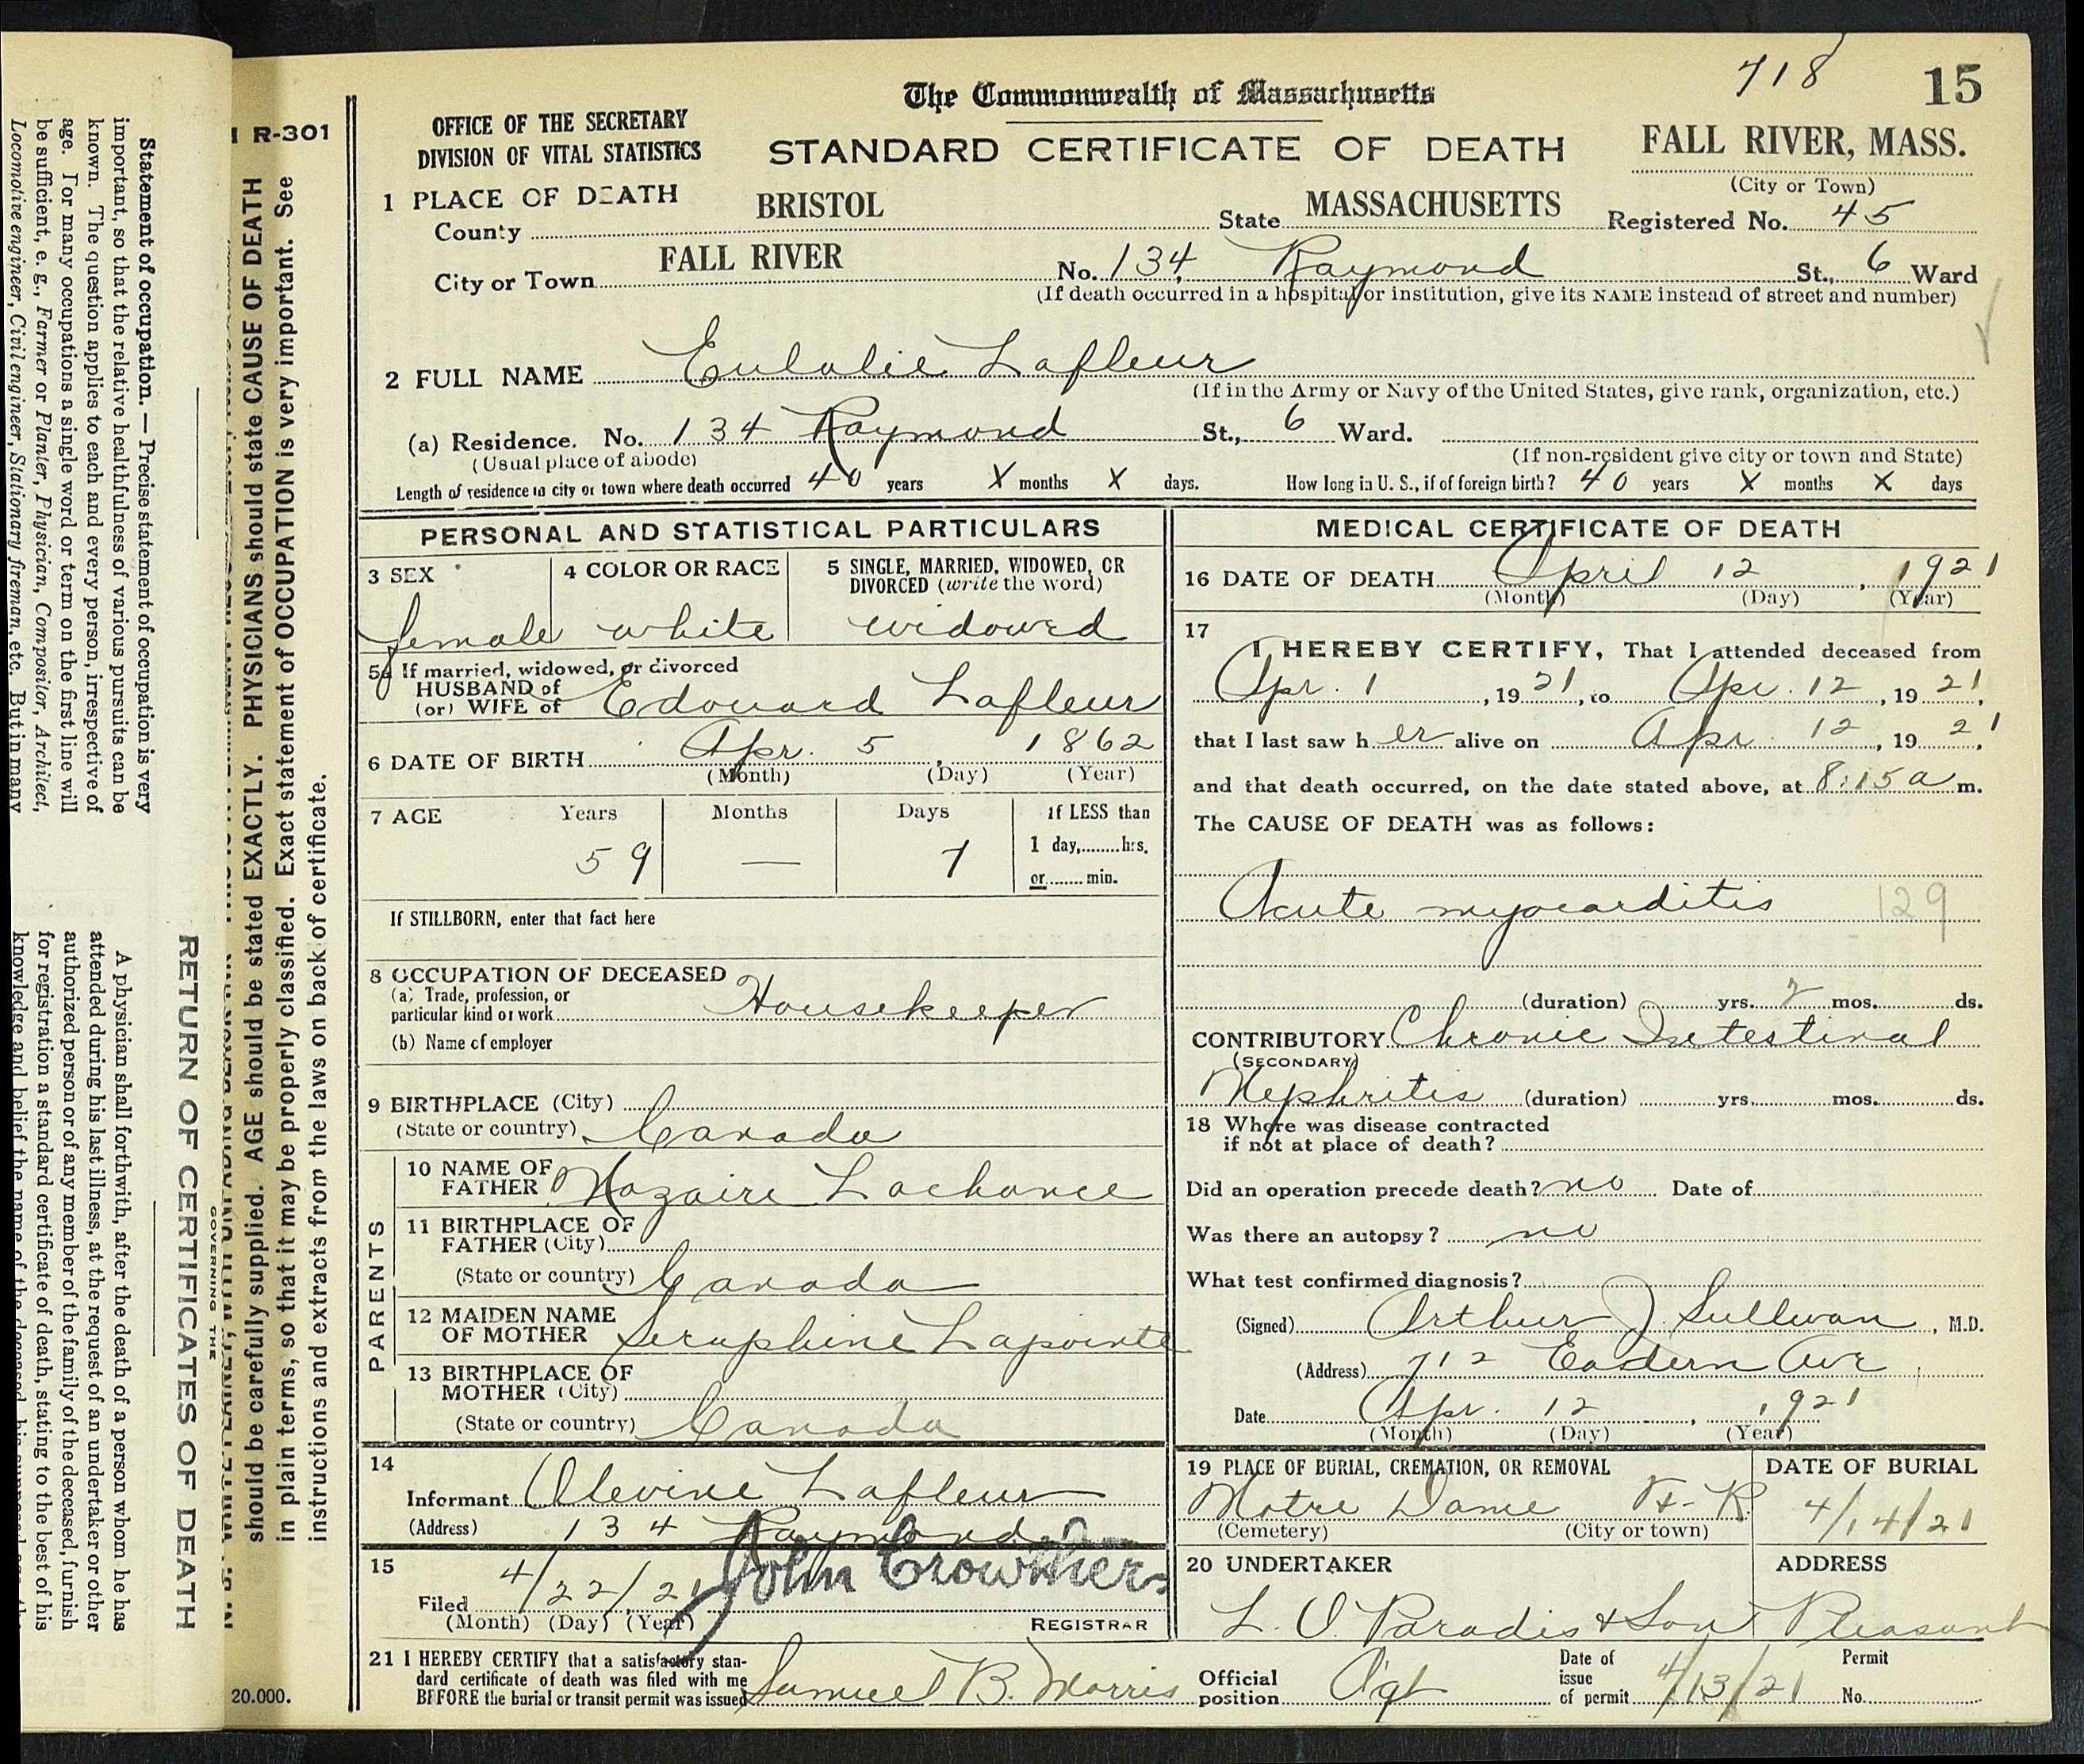 718 15
The Commonwealth of Massachusetts
OFFICE OF THE SECRETARY
DIVISION OF VITAL STATISTICS
STANDARD CERTIFICATE OF DEATH
FALL RIVER, MASS.
(City or Town)
1 PLACE OF DEATH
County BRISTOL State MASSACHUSETTS Registered No. 45
City or Town FALL RIVER No. 134 Raymond St., 6 Ward
(If death occurred in a hospital or institution, give its NAME instead of street and number)
2 FULL NAME Eulalie Lafleur
(If in the Army or Navy of the United States, give rank, organization, etc.)
(a) Residence. No. 134 Raymond St., 6 Ward.
(Usual place of abode) (If non-resident give city or town and State)
Length of residence in city or town where death occurred 40 years X months X days. How long in U. S., if of foreign birth? 40 years X months X days
PERSONAL AND STATISTICAL PARTICULARS
3 SEX 4 COLOR OR RACE 5 SINGLE, MARRIED, WIDOWED, OR
DIVORCED (write the word)
female white widowed
5a If married, widowed, or divorced
HUSBAND of
(or) WIFE of Edouard Lafleur
6 DATE OF BIRTH Apr. 5, 1862
(Month) (Day) (Year)
7 AGE Years Months Days If LESS than
1 day,........hrs.
59 — 7
or........min.
If STILLBORN, enter that fact here
8 OCCUPATION OF DECEASED
(a) Trade, profession, or
particular kind of work Housekeeper
(b) Name of employer
9 BIRTHPLACE (City)
(State or country) Canada
PARENTS
10 NAME OF
FATHER Nazaire Lachance
11 BIRTHPLACE OF
FATHER (City)
(State or country) Canada
12 MAIDEN NAME
OF MOTHER Seraphine Lapointe
13 BIRTHPLACE OF
MOTHER (City)
(State or country) Canada
14
Informant Olevine Lafleur
(Address) 134 Raymond
15 John Crowther
Filed 4/22/21
(Month) (Day) (Year) REGISTRAR
MEDICAL CERTIFICATE OF DEATH
16 DATE OF DEATH April 12, 1921
(Month) (Day) (Year)
17
I HEREBY CERTIFY, That I attended deceased from
Apr. 1, 1921, to Apr. 12, 1921,
that I last saw her alive on Apr 12, 1921,
and that death occurred, on the date stated above, at 8:15 a m.
The CAUSE OF DEATH was as follows:
Acute myocarditis 129
(duration) yrs. 2 mos. ds.
CONTRIBUTORY Chronic Intestinal
(SECONDARY)
Nephritis (duration) yrs. mos. ds.
18 Where was disease contracted
if not at place of death?
Did an operation precede death? no Date of
Was there an autopsy? no
What test confirmed diagnosis?
(Signed) Arthur J. Sullivan, M.D.
(Address) 712 Eastern Ave
Date Apr. 12, 1921
(Month) (Day) (Year)
19 PLACE OF BURIAL, CREMATION, OR REMOVAL DATE OF BURIAL
Notre Dame F. R. 4/14/21
(Cemetery) (City or town)
20 UNDERTAKER ADDRESS
L. O. Paradis & Son Pleasant
21 I HEREBY CERTIFY that a satisfactory stan-
dard certificate of death was filed with me
BEFORE the burial or transit permit was issued Samuel B. Morris Official
position Agt Date of
issue
of permit 4/13/21 Permit
No.
R-301
should be carefully supplied. AGE should be stated EXACTLY. PHYSICIANS should state CAUSE OF DEATH
in plain terms, so that it may be properly classified. Exact statement of OCCUPATION is very important. See
instructions and extracts from the laws on back of certificate.
20.000.
Statement of occupation. — Precise statement of occupation is very
important, so that the relative healthfulness of various pursuits can be
known. The question applies to each and every person, irrespective of
age. For many occupations a single word or term on the first line will
be sufficient, e. g., Farmer or Planter, Physician, Compositor, Architect,
Locomotive engineer, Civil engineer, Stationary fireman, etc. But in many
RETURN OF CERTIFICATES OF DEATH
GOVERNING THE
A physician shall forthwith, after the death of a person whom he has
attended during his last illness, at the request of an undertaker or other
authorized person or of any member of the family of the deceased, furnish
for registration a standard certificate of death, stating to the best of his
knowledge and belief the name of the deceased, his supposed age, the